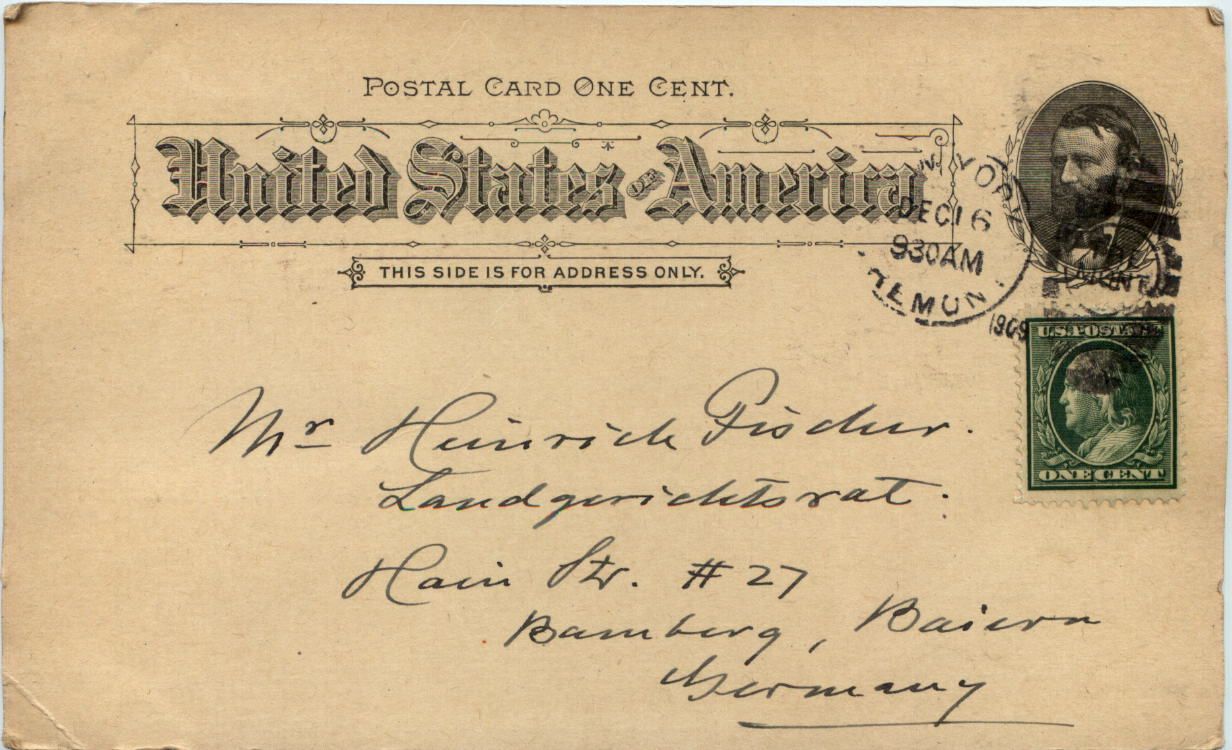 POSTAL CARD ONE CENT.
United States OF America
THIS SIDE IS FOR ADDRESS ONLY.
YORK
DEC 16
930AM
1909
U.S. POSTAGE
ONE CENT
Mr Heinrich Fischer.
Landgerichtsrat.
Hain Str. # 27
Bamberg, Baiern
Germany